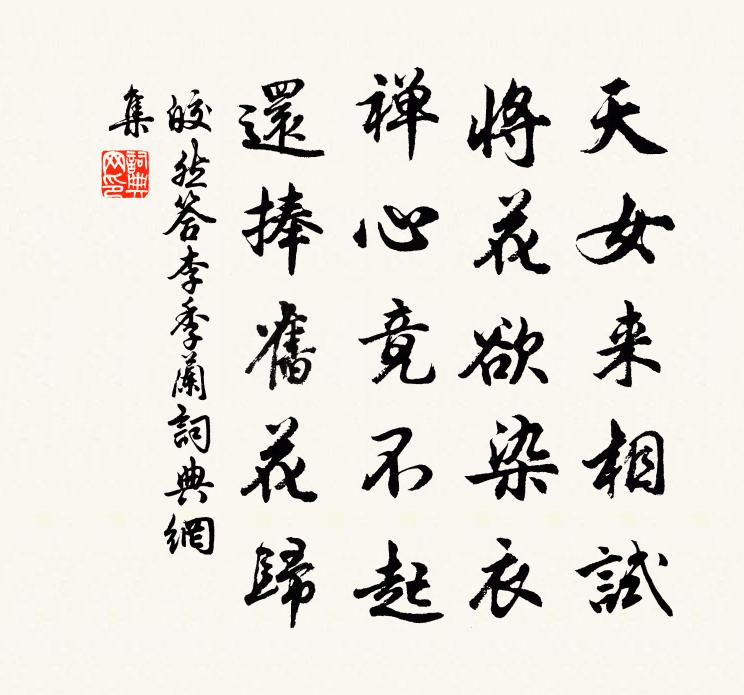 天女来相試
將花欲染衣
禅心竟不起
還捧舊花歸
皎然答李季蘭詞典網
集
詞典網印